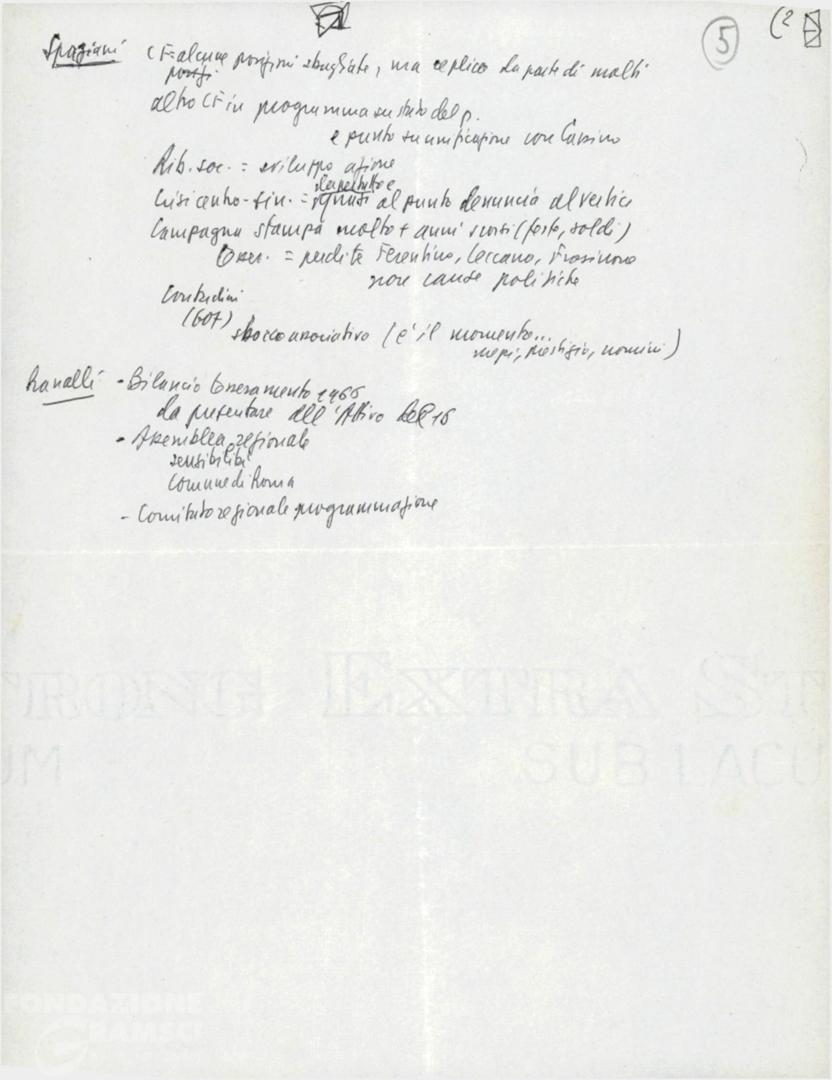 5 (2
Spaziani CF = alcune posizioni sbagliate, ma replica da parte di molti
posiz.
altro CF in programma su stato del p.
e punto su unificazione con Cassino
Rib. soc. = sviluppo azione
Crisi centro-sin. = quasi al punto denuncia al vertice
Campagna stampa molto + anni scorsi (feste, soldi)
Tess. = perdite Ferentino, Ceccano, Frosinone
non cause politiche
Contadini
(607)
sbocco associativo (è il momento...
mezzi, prestigio, uomini)
Ranalli - Bilancio tesseramento 1966
da presentare all'Attivo del 16
- Assemblea regionale
sensibilità
Comune di Roma
- Comitato regionale programmazione
STRONG EXTRA ST
UM - SUBLACU
FONDAZIONE
GRAMSCI